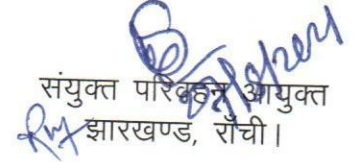 संयुक्त परिवहन आयुक्त
झारखण्ड, राँची।